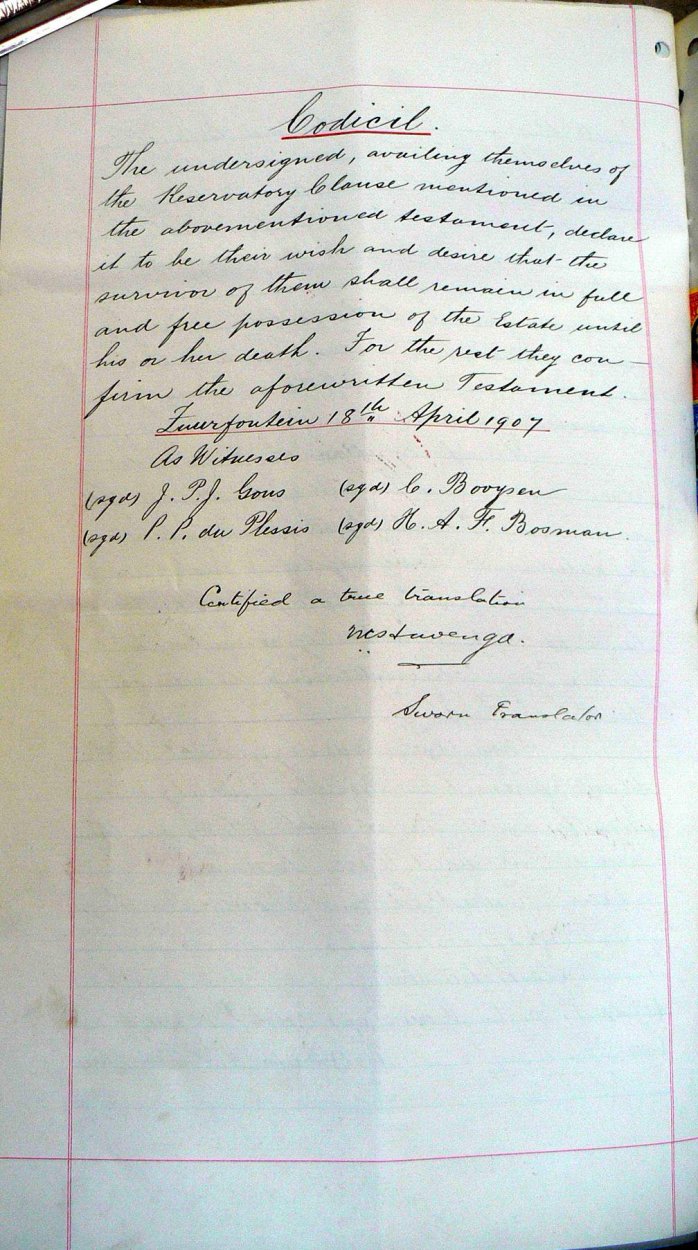 Codicil.
The undersigned, availing themselves of
the Reservatory Clause mentioned in
the abovementioned testament, declare
it to be their wish and desire that the
survivor of them shall remain in full
and free possession of the Estate until
his or her death. For the rest they con-
firm the aforewritten Testament.
Zuurfontein 18th April 1907
As Witnesses
(sgd) J. P. J. Gous (sgd) C. Booysen
(sgd) P. P. du Plessis (sgd) H. A. F. Bosman.
Certified a true translation
Sworn Translator